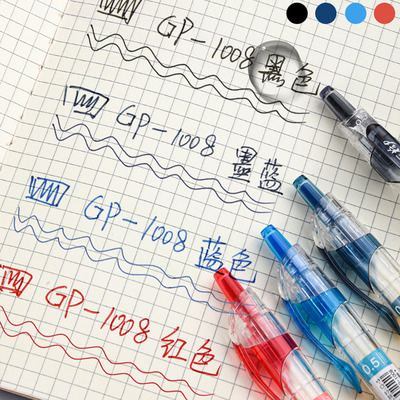 GP-1008 黑色
GP-1008 墨蓝
GP-1008 蓝色
GP-1008 红色
0.5